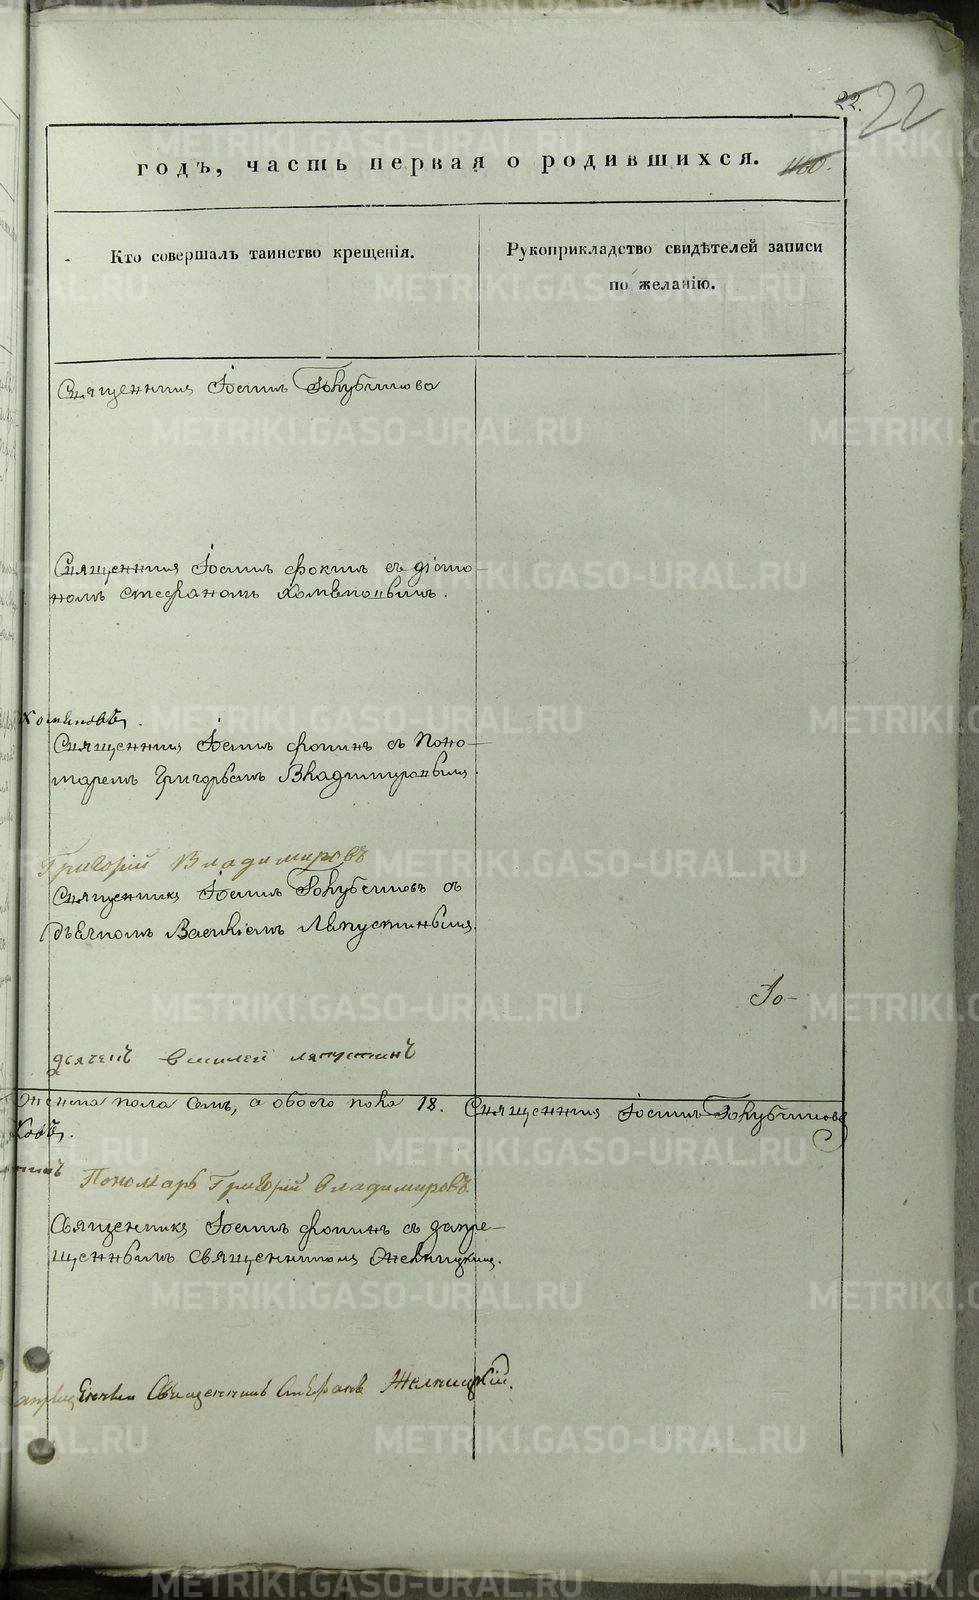 22. 22
годъ, часть первая о родившихся. 460.
Кто совершалъ таинство крещенія.
Рукоприкладство свидѣтелей записи
по желанію.
Священникъ Іоаннъ Голубчиковъ
Священникъ Іоаннъ Фокинъ съ діако-
номъ Стефаномъ Хомяковымъ.
Хомяковъ.
Священникъ Іоаннъ Фокинъ съ Поно-
маремъ Григорьемъ Владимировымъ.
Григорій Владимировъ
Священникъ Іоаннъ Голубчиковъ съ
дьячкомъ Василіемъ Ляпустинымъ.
Го-
дьячекъ Василей Ляпустинъ
женска пола семь, а обоего пола 18. Священникъ Іоаннъ Голубчиковъ
Пономарь Григорій Владимировъ
Священникъ Іоаннъ Фокинъ съ запре-
щеннымъ Священникомъ Желницкимъ.
Священникъ Стефанъ Желницкій.
METRIKI.GASO-URAL.RU